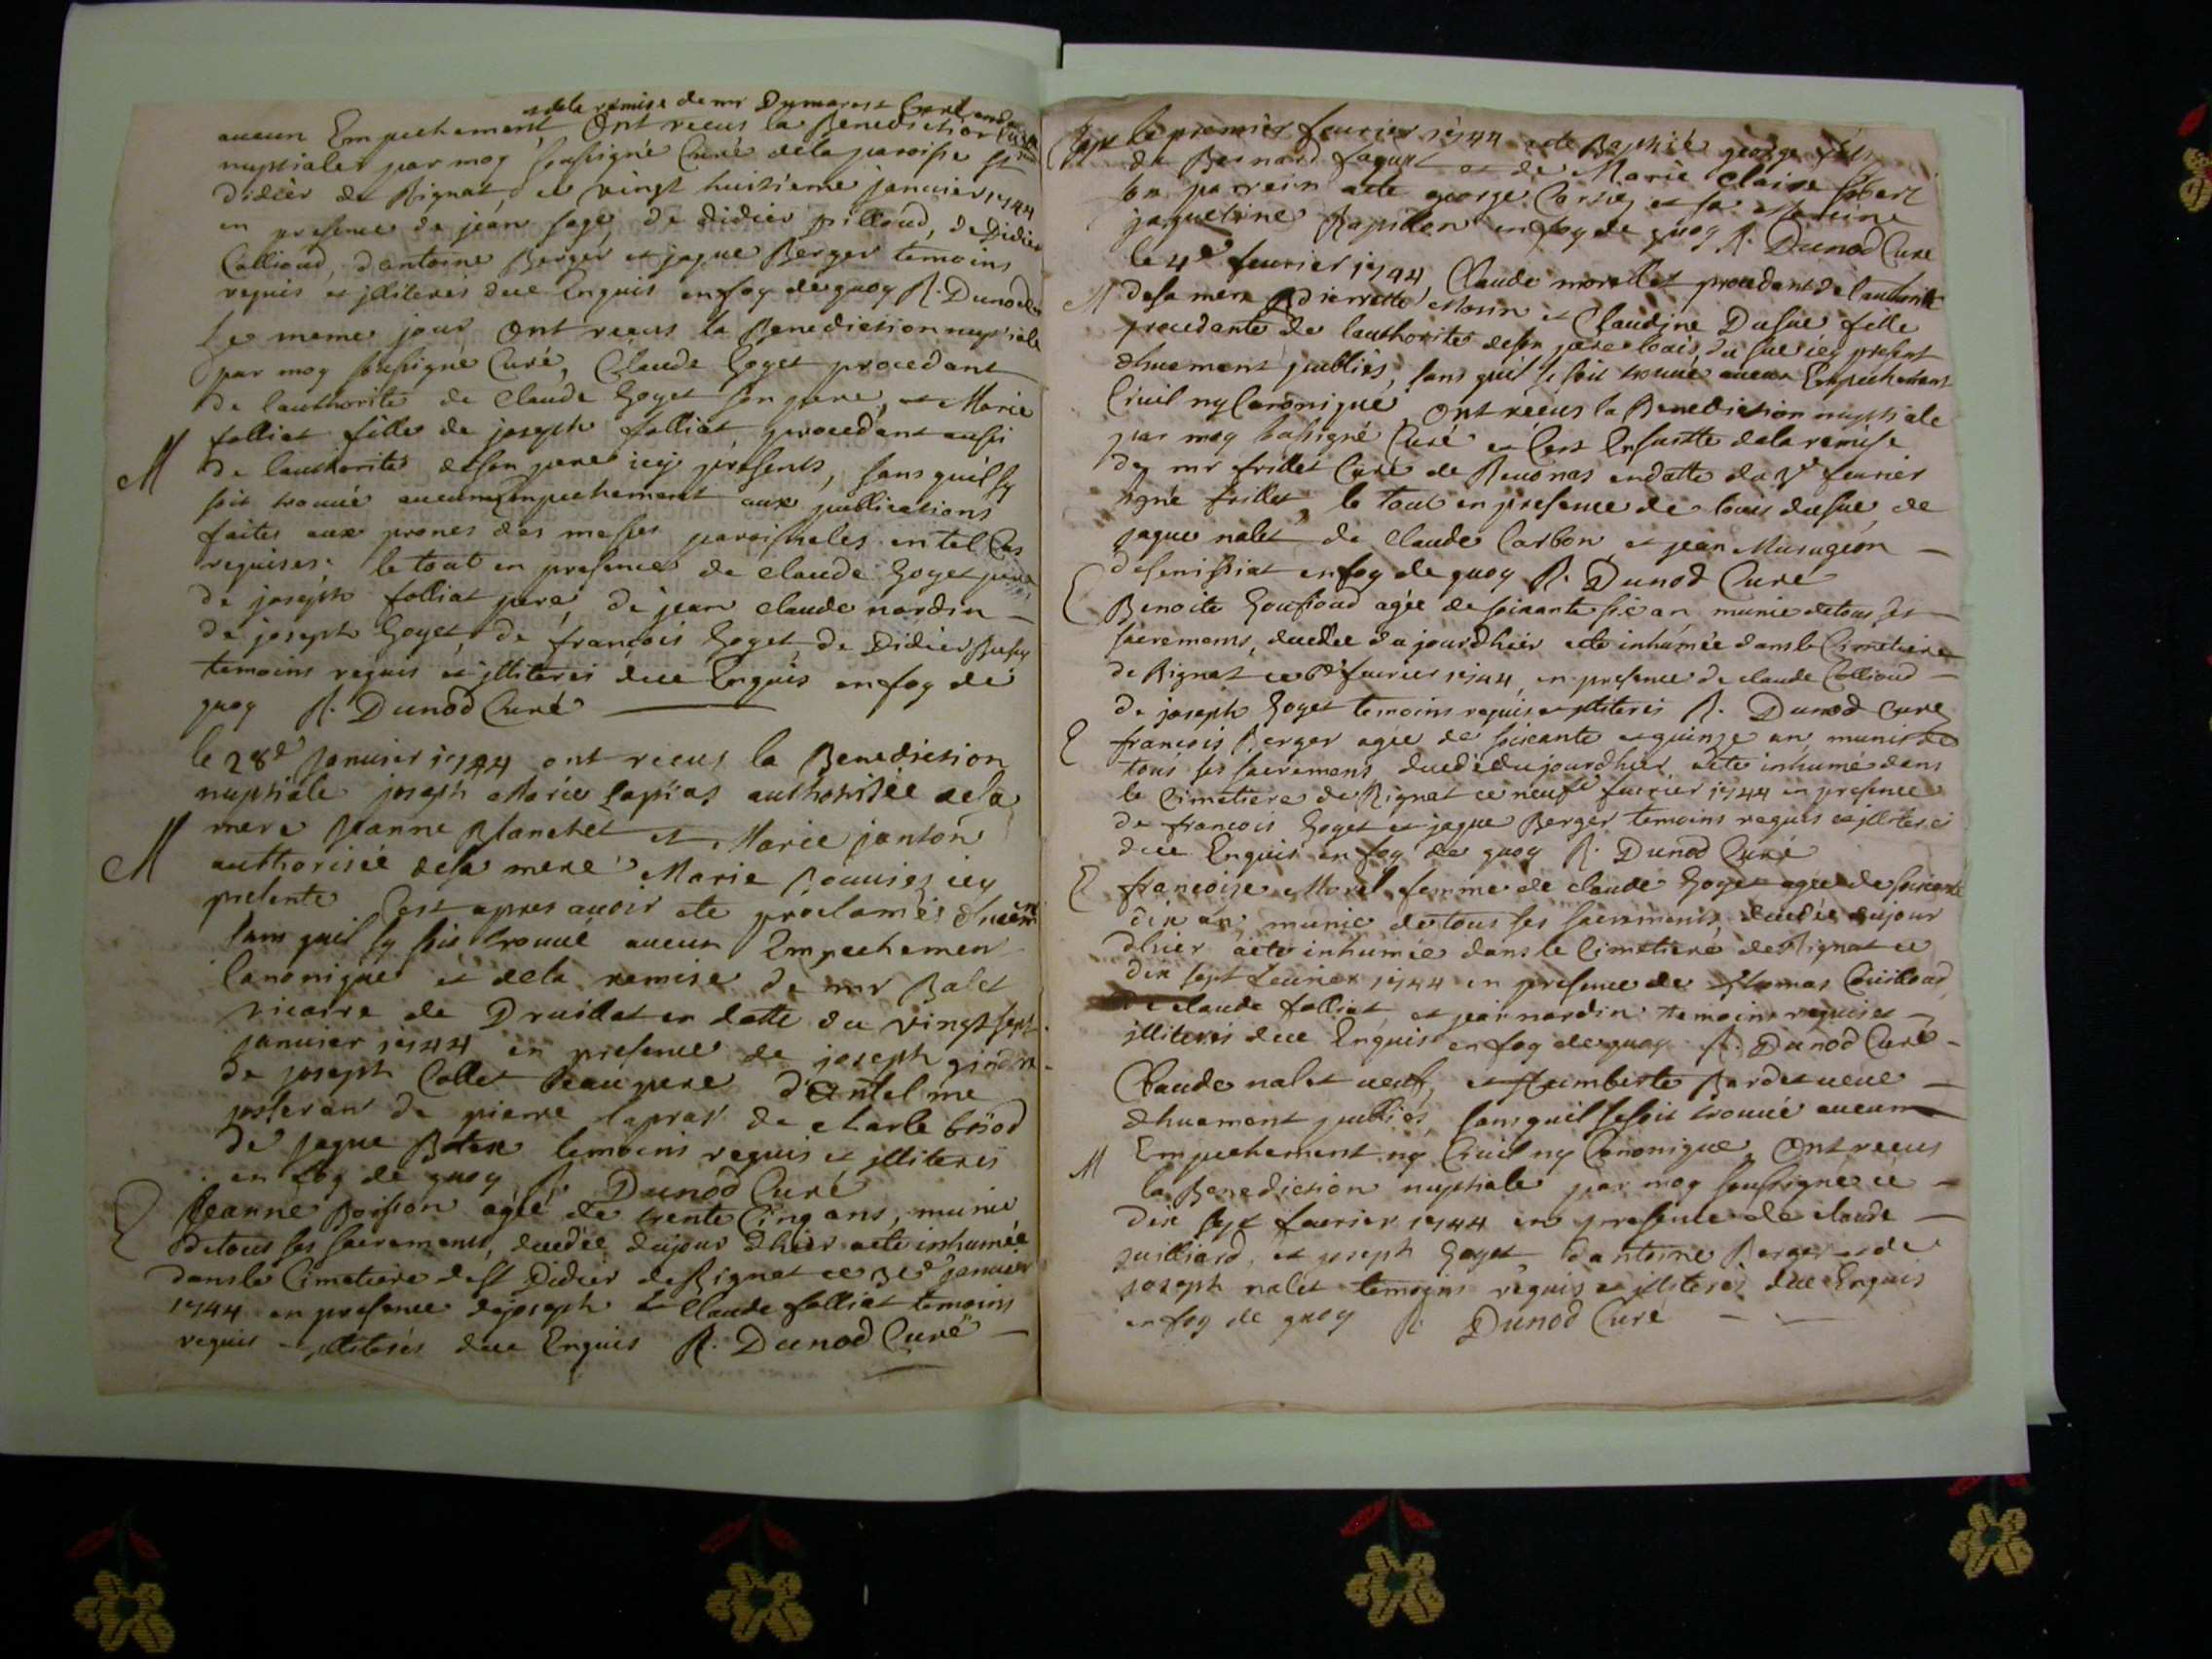 et dela remise de mr Dumarest Curé
aucun Empechement, Ont receus la Benediction
nuptiales par moy soussigné Curé dela paroisse St
Didier de Rignat, ce vingt huitieme janvier 1744
en presence de jean foge de didier pilloud, de Didier
Collioud, d'antoine Berger et jaque Berger temoins
requis et jlliterés duë Enquis en foy de quoy R. Dunod
Le meme jour ont receus la Benediction nuptiale
par moy soussigné Curé, Claude Goyet procedant
de lauthorité de Claude Goyet son pere, et Marie
folliat fille de joseph folliat, procedant aussi
M de lauthorité de son pere icy presents, sans quil sy
soit trouvé aucun Empechement aux publications
faites aux prones des messes paroissiales en tel Cas
requises. le tout en presence de Claude Goyet pere
de joseph folliat pere, de jean claude nardin
de joseph Goyet, de françois Goyet, de Didier
temoins requis et jlliterés duë Enquis en foy de
quoy R. Dunod Curé
le 28e janvier 1744 ont receus la Benediction
nuptiale joseph Marie authorisée de sa
mere jeanne Blanchet et Marie janton
M authorisée de sa mere Marie icy
presente C'est apres avoir ete proclamés
sans quil sy soit trouvé aucun Empechement
Canonique et dela remise de mr Balet
vicaire de Druillat en datte du vingt sept
janvier 1744 en presence de joseph
de joseph Collet Beaupere d'antelme
de pierre de charle
de jaque temoins requis et jlliterés
en foy de quoy R. Dunod Curé
jeanne Poisson agée de trente Cinq ans, munie
de tous ses sacremens, decedée dujour dhier a ete inhumée
dans le Cimetiere de St Didier de Rignat ce janvier
1744 en presence de joseph et Claude folliat temoins
requis et jlliterés duë Enquis R. Dunod Curé
Bapt le premier fevrier 1744 a ete Baptisé george fils
de Bernard et de Marie Claire
son parrein a ete george et sa Marreine
jaquetine en foy de quoy R. Dunod Curé
le 4e fevrier 1744, Claude morellet procedant de l'authorité
M de sa mere pierrette Morin et Claudine Dusue fille
procedante de lauthorité de son pere louis du sue icy present
dhuement publiés, sans quil se soit trouvé aucun Empechement
Civil ny Canonique Ont receus la Benediction nuptiale
par moy sousigné Curé et C'est Ensuitte de la remise
de mr frillet Curé de Revonas en datte du fevrier
signé frillet, le tout en presence de louis dusue de
jaque nalet de Claude Carbon et jean
en foy de quoy R. Dunod Curé
Benoite agée de soixante six an munie de tous ses
sacremens, decedée du jourdhier a ete inhumée dans le Cimetiere
de Rignat ce 6e fevrier 1744, en presence de claude Collioud
de joseph Goyet temoins requis et jlliterés R. Dunod Curé
françois Berger agée de soixante et quinze an, munis de
tous ses sacremens decedé dujourdhier a ete inhumé dans
le Cimetiere de Rignat ce neufe fevrier 1744 en presence
de francois Goyet et jaque Berger temoins requis et jlliterés
duë Enquis en foy de quoy R. Dunod Curé
françoise Morel femme de claude Goyet agée de soixante
dix an, munie de tous ses sacrements, decedée dujour
dhier a ete inhumée dans le Cimetiere de Rignat ce
dix sept fevrier 1744 en presence de thomas
de claude folliat, et jean nardin temoins requis et
jlliterés duë Enquis en foy de quoy R. Dunod Curé
Claude nalet veuf, et humberte Bardet veuve
dhuement publiés, sans quil se soit trouvé aucun
M Empechement ny Civil ny Canonique, Ont receus
la Benediction nuptiale par moy soussigné ce
dix sept fevrier 1744 en presence de claude
et joseph Goyet, d'antoine Berger et de
joseph nalet temoins requis et jlliterés duë Enquis
en foy de quoy R. Dunod Curé